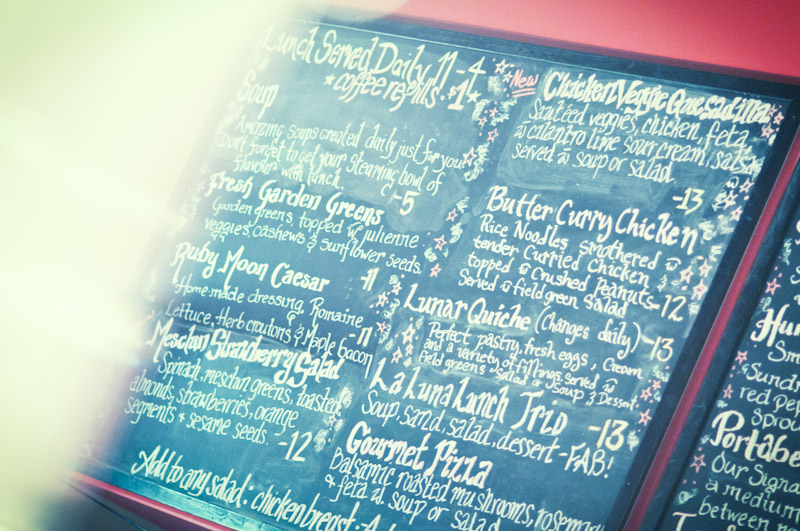 Lunch Served Daily 11-4
* coffee refills $1 *
Soup
Amazing soups created daily just for you
Don't forget to get your steaming bowl of
flavour with lunch. -5
Fresh Garden Greens
Garden greens topped w julienne
veggies, cashews & sunflower seeds.
-11
Ruby Moon Caesar
Home-made dressing, Romaine
Lettuce, Herb croutons & Maple bacon
-11
Mesclun Strawberry Salad
Spinach, mesclun greens, toasted
almonds, strawberries, orange
segments & sesame seeds -12
Add to any salad - chicken breast -
New
Chicken Veggie Quesadilla
Sautéed veggies, chicken, feta
w cilantro lime sour cream, salsa
served w soup or salad.
-13
Butter Curry Chicken
Rice Noodles smothered w
tender Curried Chicken &
topped w Crushed Peanuts
Served w field green salad -12
Lunar Quiche (Changes daily) -13
Perfect pastry, fresh eggs, Cream
and a variety of fillings served w
field greens salad or Soup & Dessert
La Luna Lunch Trio -13
Soup, sand, salad, dessert - FAB!
Gourmet Pizza
Balsamic roasted mushrooms, rosemary
& feta w soup or salad
Hu
Sm
Sundr
red Pep
Sprou
Portabe
Our Signa
a medium
between